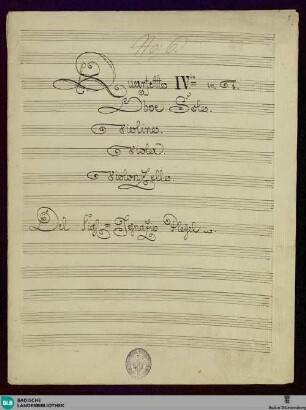 No: 6.
Quartetto IV^to in G.
Oboe Solo.
Violino.
Viola.
Violonzello
Del Sigl= Ignazio Pleÿel
BLB BADISCHE
LANDESBIBLIOTHEK
Baden-Württemberg